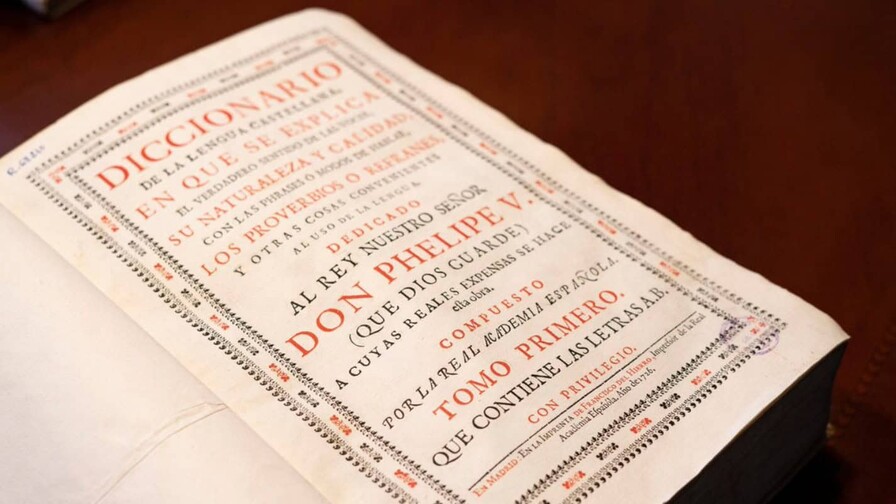 DICCIONARIO
DE LA LENGUA CASTELLANA,
EN QUE SE EXPLICA
EL VERDADERO SENTIDO DE LAS VOCES,
SU NATURALEZA Y CALIDAD,
CON LAS PHRASES O MODOS DE HABLAR,
LOS PROVERBIOS O REFRANES,
Y OTRAS COSAS CONVENIENTES
AL USO DE LA LENGUA.
DEDICADO
AL REY NUESTRO SEÑOR
DON PHELIPE V.
(QUE DIOS GUARDE)
A CUYAS REALES EXPENSAS SE HACE
esta obra.
COMPUESTO
POR LA REAL ACADEMIA ESPAÑOLA.
TOMO PRIMERO.
QUE CONTIENE LAS LETRAS A.B.
CON PRIVILEGIO.
EN MADRID. En la Imprenta de FRANCISCO DEL HIERRO, Impressor de la Real
Académia Española. Año de 1726.